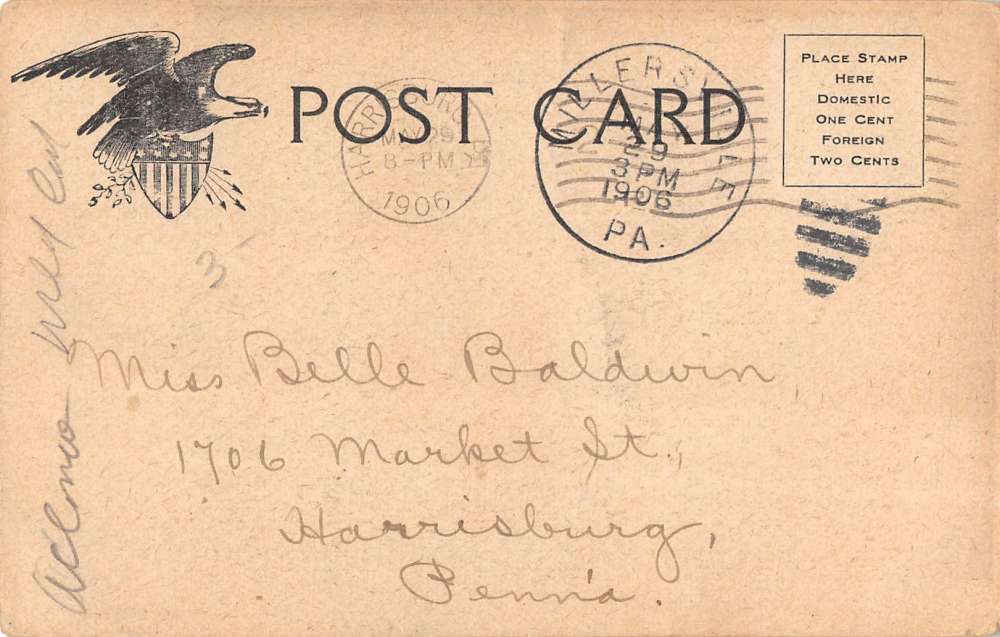 POST CARD
PLACE STAMP
HERE
DOMESTIC
ONE CENT
FOREIGN
TWO CENTS
HARRISBURG
MAY 29
8-PM
1906
MILLERSVILLE
MAY
29
3PM
1906
PA.
3
Miss Belle Baldwin
1706 Market St.,
Harrisburg,
Penn'a.